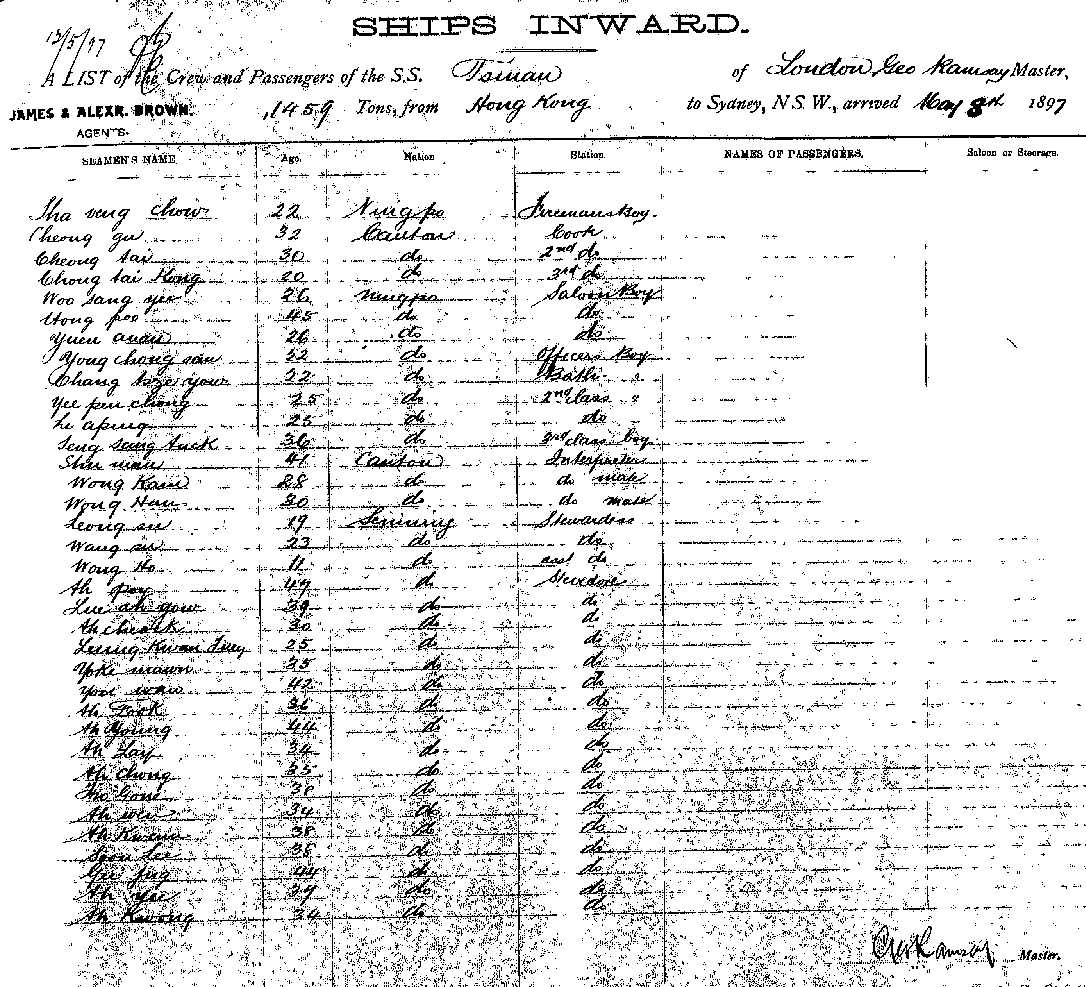 SHIPS INWARD.
13/5/97
A LIST of the Crew and Passengers of the S.S. Tsinan of London, Geo Ramsay Master,
JAMES & ALEXR. BROWN. 1459 Tons, from Hong Kong to Sydney, N.S.W., arrived May 8th 1897
AGENTS.
SEAMEN'S NAME Age. Nation Station. NAMES OF PASSENGERS. Saloon or Steerage.
Sha veng chow 22 Ningpo Firemans Boy.
Cheong gu 32 Canton Cook
Cheong tai 30 do 2nd do
Chong tai Kong 20 do 3rd do
Woo sang yee 26 Ningpo Saloon Boy
Hong poo 45 do do
Yuen 26 do do
Yong chong san 32 do Officers Boy
Chang you 22 do Bath "
Yee pen chong 25 do 2nd class "
Le aping 25 do do
Seng sang tuck 36 do 3rd class boy
Shu man 41 Canton Interpreter
Wong Kam 28 do do mate
Wong Han 30 do do mate
Leong su 19 do Stewardess
Wang su 23 do do
Wong Ho 11 do do
Ah poy 49 do Stevedore
Lue ah gow 39 do do
Ah cheak 30 do do
Leung Kwan 25 do do
Yoke mawn 25 do do
you wan 42 do do
Ah Fook 36 do do
Ah Young 44 do do
Ah Lay 34 do do
Ah Chong 35 do do
38 do do
Ah wee 34 do do
Ah Kwan 38 do do
Soon Lee 38 do do
44 do do
Ah yee 29 do do
Ah Kwong 34 do do
Geo Ramsay Master.